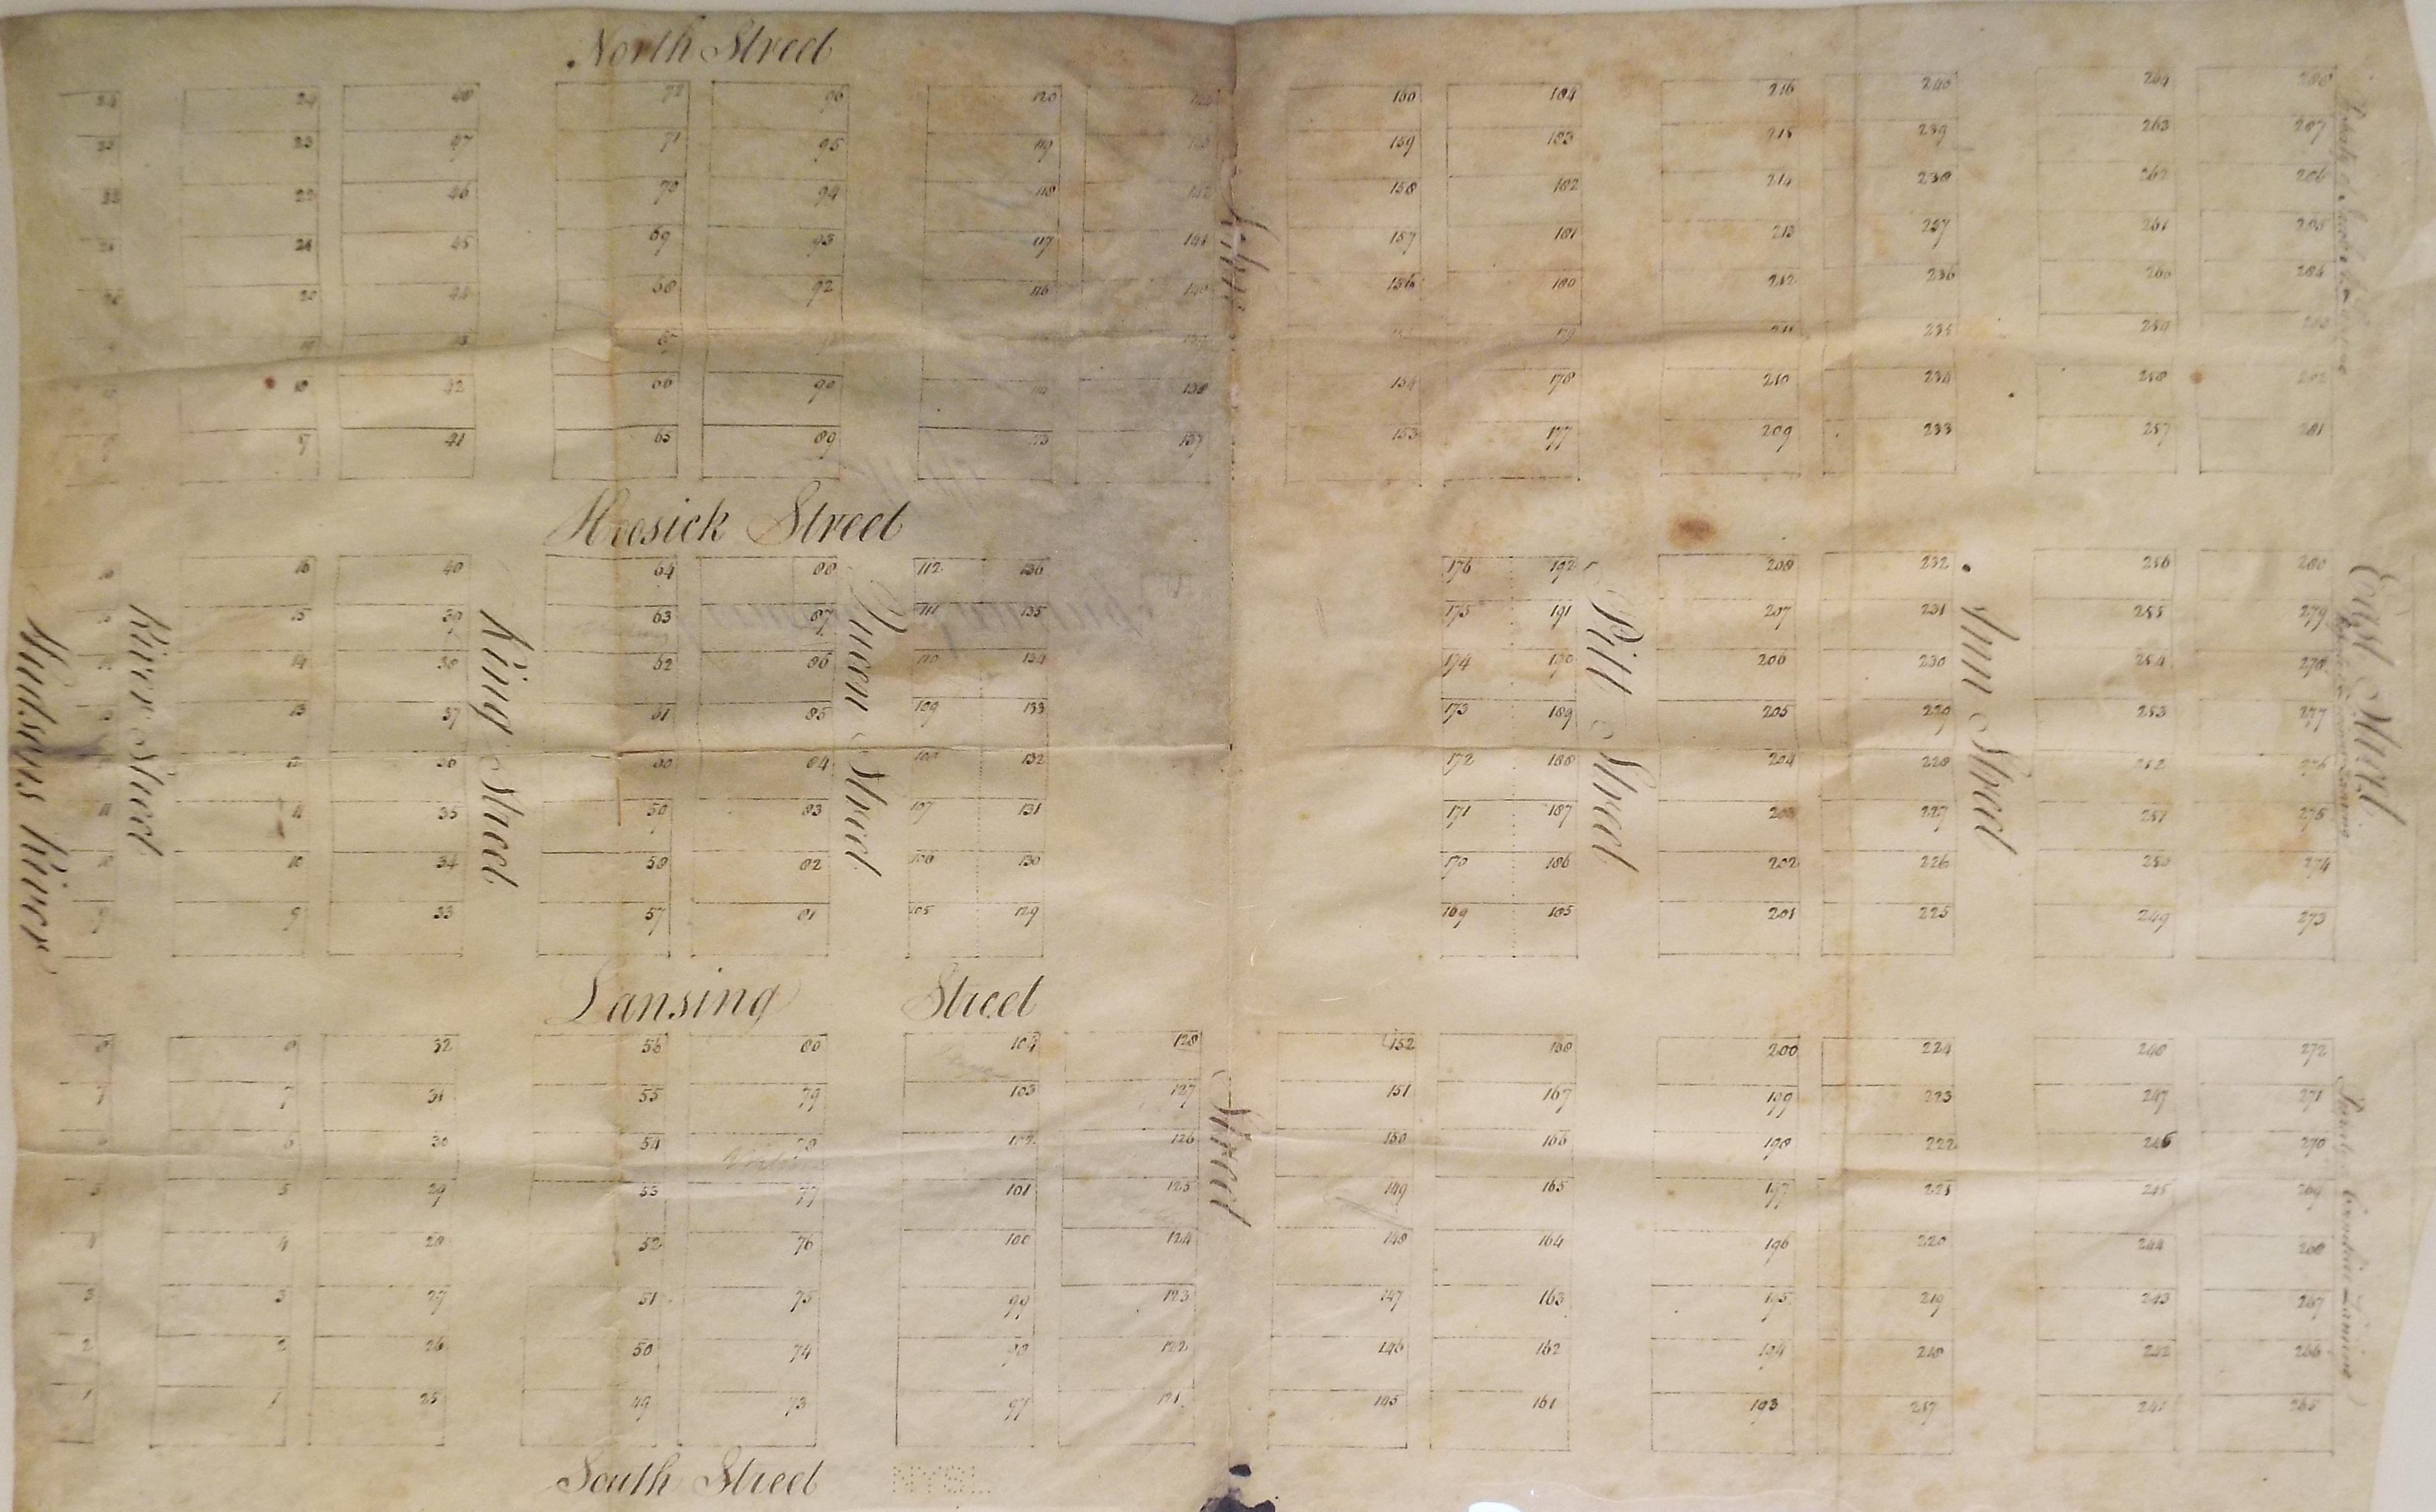 North Street
24 24 48 72 96 120 160 184 216 240 264 288
23 23 47 71 95 119 159 183 215 239 263 287
22 22 46 70 94 118 142 158 182 214 238 262 286
21 45 69 93 117 141 157 181 213 237 261 285
20 20 44 68 92 116 140 156 180 212 236 260 284
67 139 179 211 235 259
18 42 66 90 138 154 178 210 234 258 282
41 65 89 137 153 177 209 233 257 281
Hoosick Street
16 16 40 64 88 112 136 176 192 208 232 256 280
15 39 63 87 111 135 175 191 207 231 255 279
14 38 62 86 110 134 174 190 206 230 254 278
13 13 37 61 85 109 133 173 189 205 229 253 277
12 36 60 84 108 132 172 188 204 228 252 276
11 11 35 59 83 107 131 171 187 203 227 251 275
10 10 34 58 82 106 130 170 186 202 226 250 274
9 9 33 57 81 105 129 169 185 201 225 249 273
Hudsons River
River Street
King Street
Queen Street
Street
Pitt Street
Ann Street
East Street
Lansing Street
8 8 32 56 80 104 128 152 168 200 224 248 272
7 7 31 55 79 103 127 151 167 199 223 247 271
6 30 54 78 102 126 150 166 198 222 246 270
5 5 29 53 77 101 125 149 165 197 221 245 269
4 4 28 52 76 100 124 148 164 196 220 244 268
3 3 27 51 75 99 123 147 163 195 219 243 267
2 2 26 50 74 98 122 146 162 194 218 242 266
1 1 25 49 73 97 121 145 161 193 217 241 265
South Street
NYSL